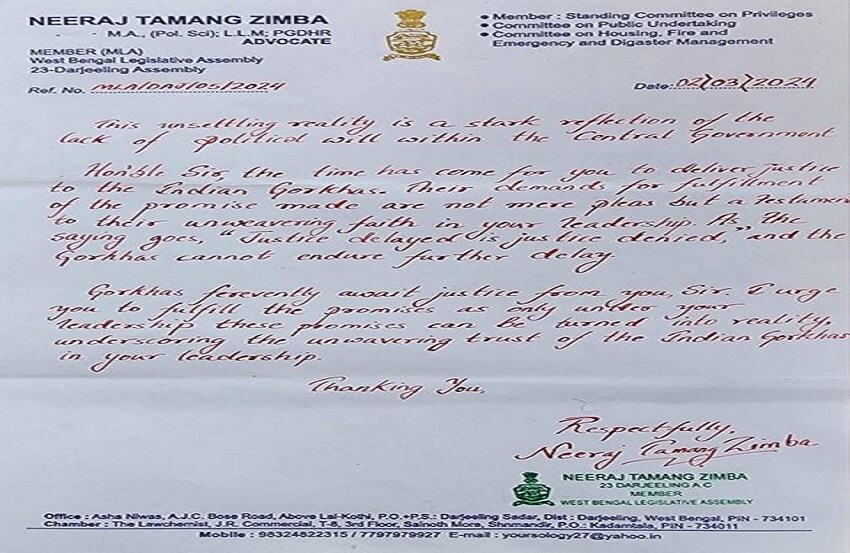 NEERAJ TAMANG ZIMBA
M.A., (Pol. Sci); L.L.M; PGDHR
ADVOCATE
MEMBER (MLA)
West Bengal Legislative Assembly
23-Darjeeling Assembly
Ref. No. MLA/DAJ/05/2024
• Member : Standing Committee on Privileges
• Committee on Public Undertaking
• Committee on Housing, Fire and
Emergency and Digaster Management
Date: 02/03/2024
This unsettling reality is a stark reflection of the
lack of political will within the Central Government.
Hon'ble Sir, the time has come for you to deliver justice
to the Indian Gorkhas. Their demands for fulfillment
of the promise made are not mere pleas but a testament
to their unweavering faith in your leadership. As the
saying goes, "Justice delayed is justice denied," and the
Gorkhas cannot endure further delay.
Gorkhas ferevently await justice from you, Sir. I urge
you to fulfill the promises as only under your
leadership these promises can be turned into reality,
underscoring the unwavering trust of the Indian Gorkhas
in your leadership.
Thanking You,
Respectfully,
Neeraj Tamang Zimba
NEERAJ TAMANG ZIMBA
23 DARJEELING A C
MEMBER
WEST BENGAL LEGISLATIVE ASSEMBLY
Office : Asha Niwas, A.J.C. Bose Road, Above Lal-Kothi, P.O.+P.S.: Darjeeling Sadar, Dist : Darjeeling, West Bengal, PIN - 734101
Chamber : The Lawchemist, J.R. Commercial, T-8, 3rd Floor, Sainoth More, Shnmandir, P.O.: Kadamtala, PIN - 734011
Mobile : 98324822315 / 7797979927 E-mail : yoursology27@yahoo.in